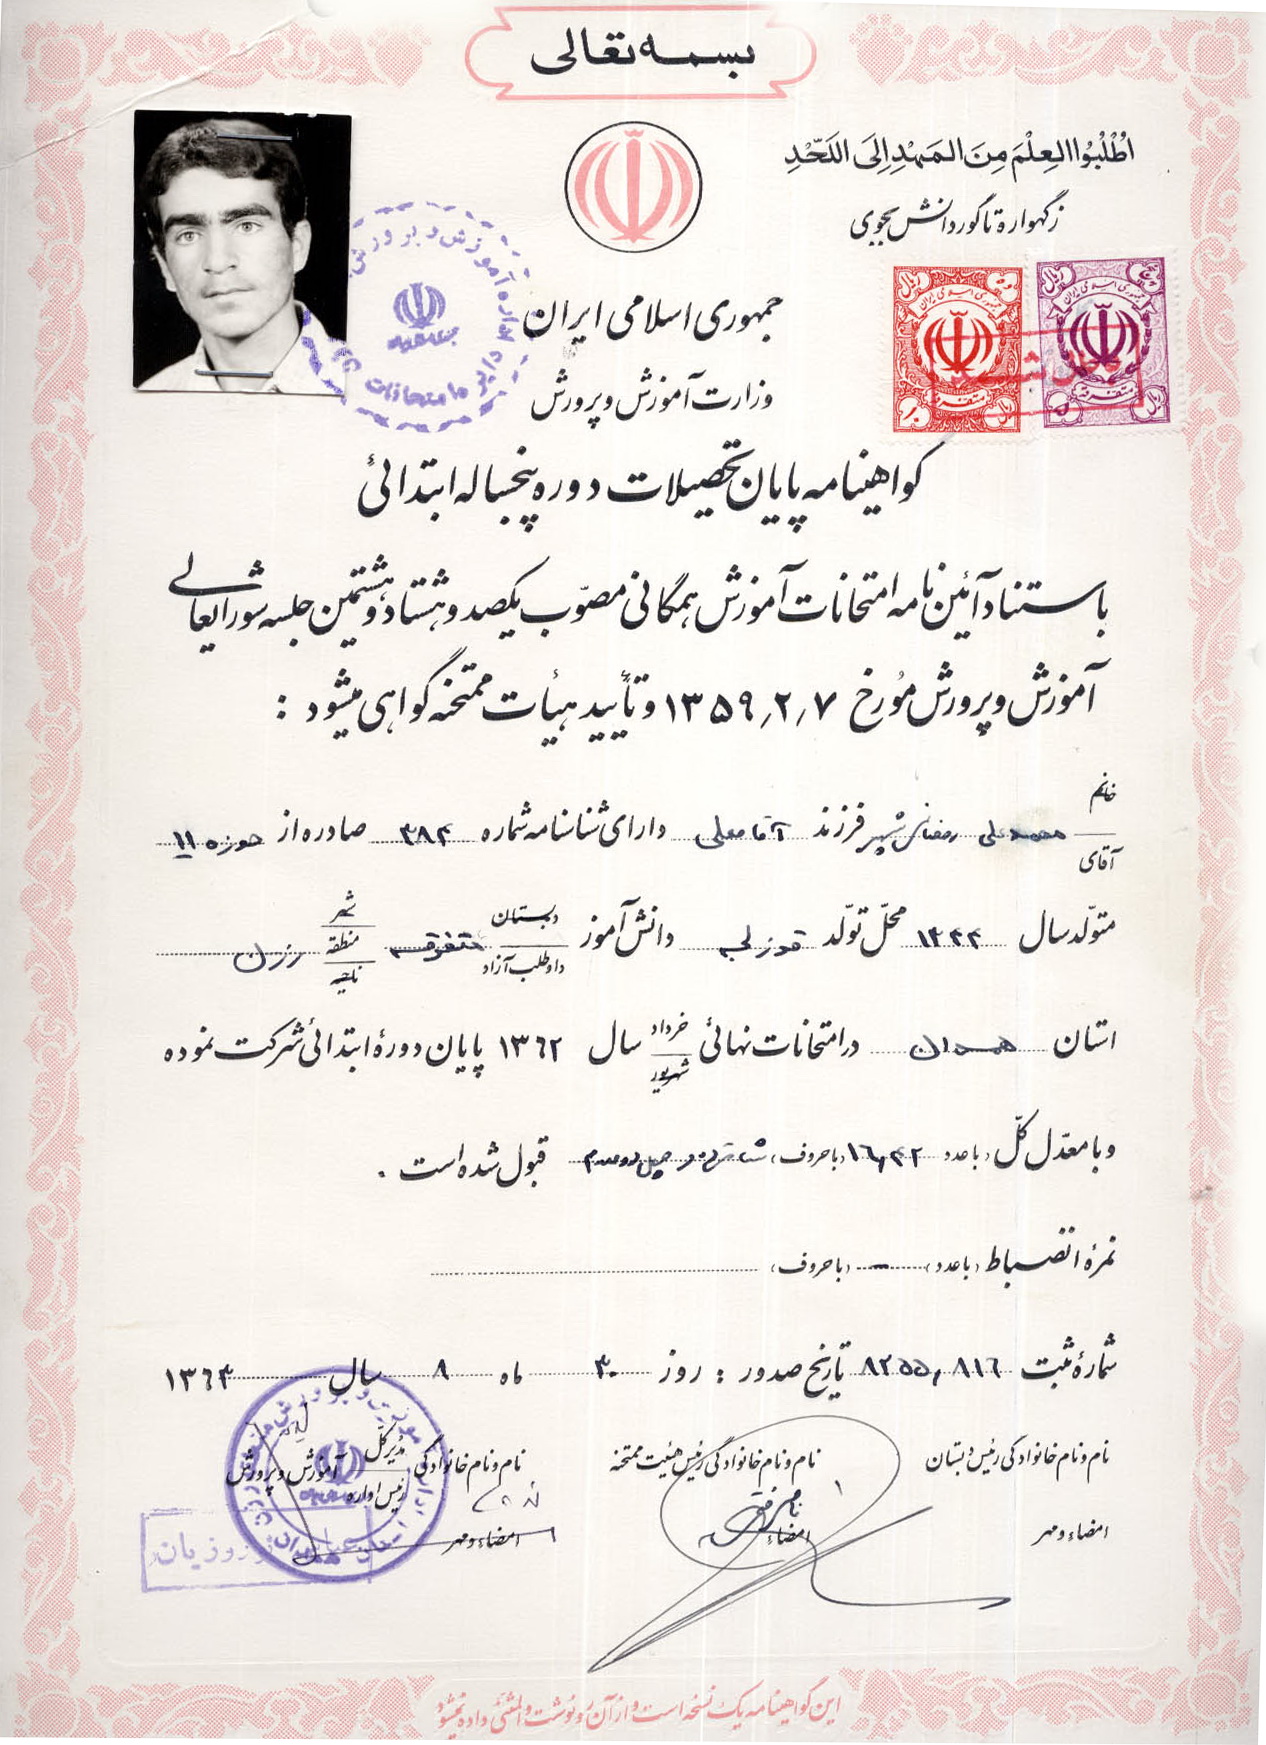 بسمه تعالی
اُطْلُبُوا العِلْمَ مِنَ المَهْدِ اِلَی اللَّحْدِ
ز گهواره تا گور دانش بجوی
جمهوری اسلامی ایران
وزارت آموزش و پرورش
گواهینامه پایان تحصیلات دوره پنجساله ابتدائی
باستناد آئین نامه امتحانات آموزش همگانی مصوّب یکصد و هشتاد و هشتمین جلسه شورایعالی
آموزش و پرورش مُورخ ۷ر۲ر۱۳۵۹ و تأیید هیأت ممتحنه گواهی میشود :
خانم
آقای محمدعلی رمضانی فرزند آقامعلی دارای شناسنامه شماره ۳۸۴ صادره از حوزه ۱۱
متولّد سال ۱۳۴۴ محلّ تولّد دانش آموز دبستان داوطلب آزاد متفرقه شهر منطقه ناحیه رزن
استان همدان در امتحانات نهائی خرداد شهریور سال ۱۳۶۲ پایان دورهٔ ابتدائی شرکت نموده
و با معدّل کلّ (با عدد) ۱۶٫۴۲ (با حروف) قبول شده است .
نمرهٔ انضباط (با عدد) — (با حروف)
شمارهٔ ثبت تاریخ صدور : روز ۳۰ ماه ۸ سال ۱۳۶۴
نام و نام خانوادگی رئیس دبستان
نام و نام خانوادگی رئیس هیئت ممتحنه
نام و نام خانوادگی مدیر کلّ رئیس اداره آموزش و پرورش
امضاء و مهر
امضاء
امضاء و مهر
این گواهینامه یک نسخه است و از آن رونوشت و المثنی داده نمیشود